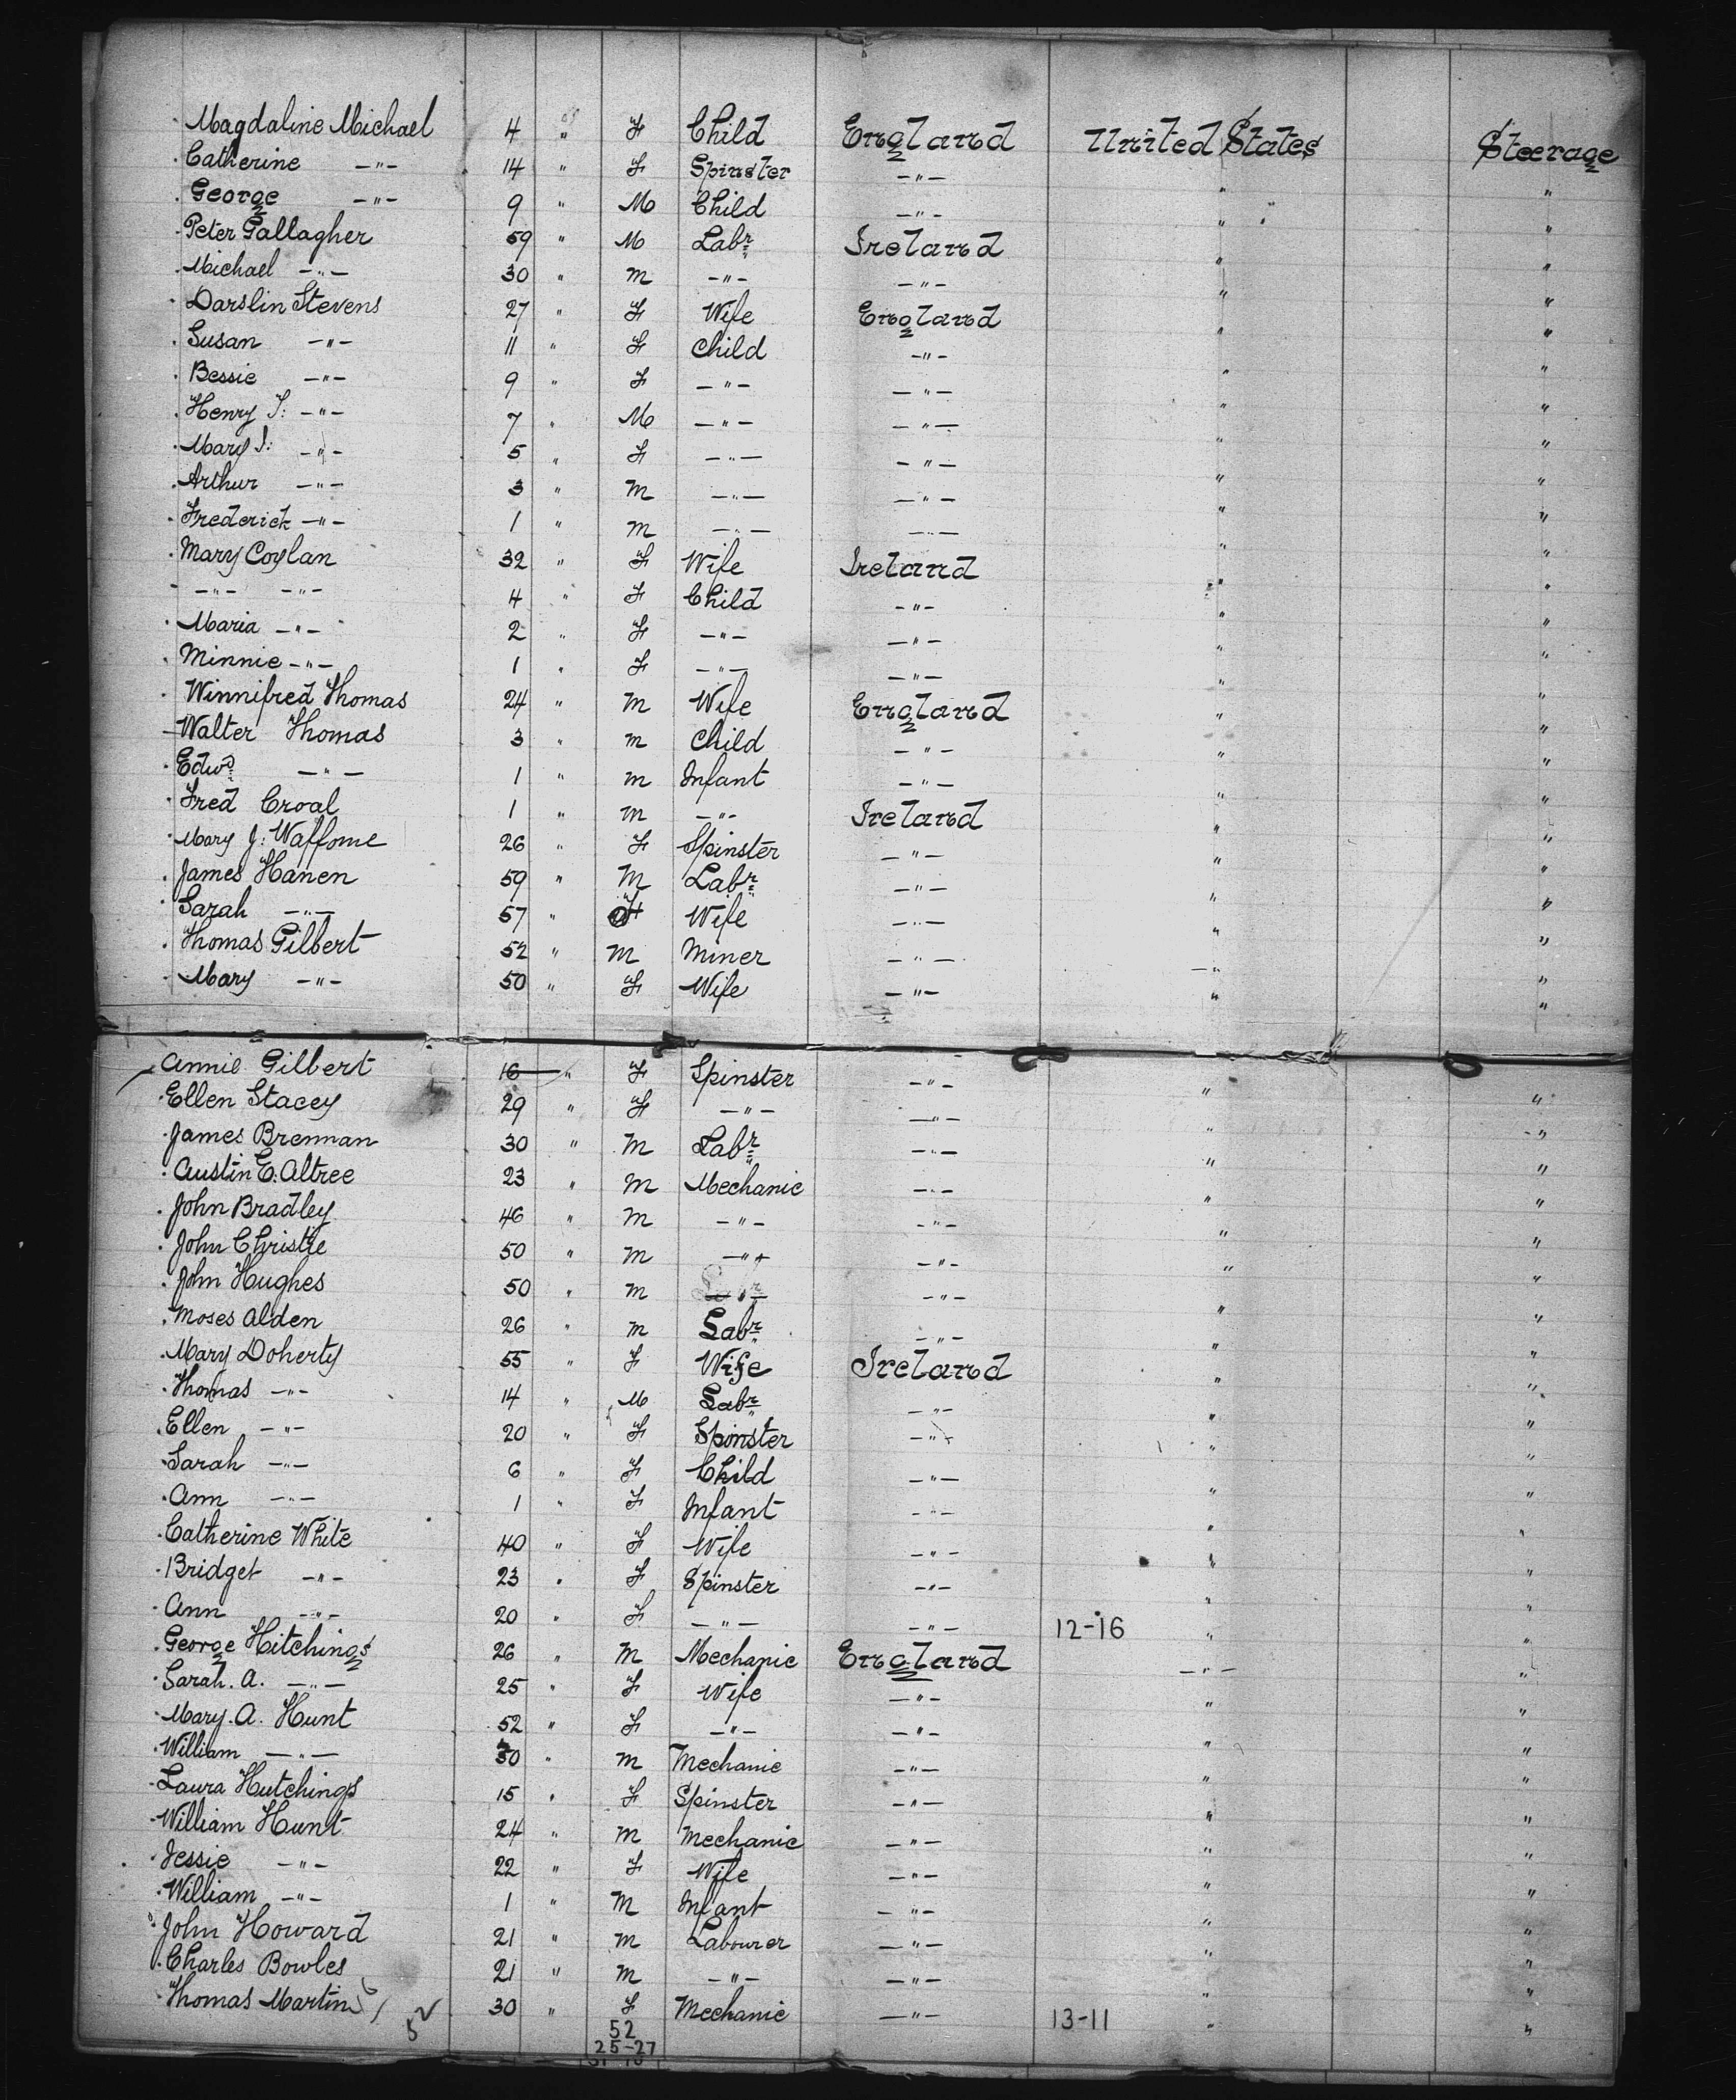 Magdaline Michael 4 " F Child England United States Steerage
Catherine —"— 14 " F Spinster —"— " "
George —"— 9 " M Child —"— " "
Peter Gallagher 59 " M Labr Ireland " "
Michael —"— 30 " M —"— —"— " "
Darslin Stevens 27 " F Wife England " "
Susan —"— 11 " F Child —"— " "
Bessie —"— 9 " F —"— —"— " "
Henry J: —"— 7 " M —"— —"— " "
Mary J: —"— 5 " F —"— —"— " "
Arthur —"— 3 " M —"— —"— " "
Frederick —"— 1 " M —"— —"— " "
Mary Coylan 32 " F Wife Ireland " "
—"— —"— 4 " F Child —"— " "
Maria —"— 2 " F —"— —"— " "
Minnie —"— 1 " F —"— —"— " "
Winnifred Thomas 24 " M Wife England " "
Walter Thomas 3 " M Child —"— " "
Edwd —"— 1 " M Infant —"— " "
Fred Croal 1 " M —"— Ireland " "
Mary J: Waffome 26 " F Spinster —"— " "
James Hanen 59 " M Labr —"— " "
Sarah —"— 57 " F Wife —"— " "
Thomas Gilbert 52 " M Miner —"— —"— "
Mary —"— 50 " F Wife —"— " "
Annie Gilbert 16 " F Spinster —"— " "
Ellen Stacey 29 " F —"— —"— " "
James Brennan 30 " M Labr —"— " "
Austin E. Altree 23 " M Mechanic —"— " "
John Bradley 46 " M —"— —"— " "
John Christie 50 " M —"— —"— " "
John Hughes 50 " M —"— —"— " "
Moses Alden 26 " M Labr —"— " "
Mary Doherty 55 " F Wife Ireland " "
Thomas —"— 14 " M Labr —"— " "
Ellen —"— 20 " F Spinster —"— " "
Sarah —"— 6 " F Child —"— " "
Ann —"— 1 " F Infant —"— " "
Catherine White 40 " F Wife —"— " "
Bridget —"— 23 " F Spinster —"— " "
Ann —"— 20 " F —"— —"— 12-16 " "
George Hitchings 26 " M Mechanic England —"— "
Sarah. A. —"— 25 " F Wife —"— " "
Mary. A. Hunt 52 " F —"— —"— " "
William —"— 50 " M Mechanic —"— " "
Laura Hutchings 15 " F Spinster —"— " "
William Hunt 24 " M Mechanic —"— " "
Jessie —"— 22 " F Wife —"— " "
William —"— 1 " M Infant —"— " "
John Howard 21 " M Labourer —"— " "
Charles Bowles 21 " M —"— —"— " "
Thomas Martin 30 " F Mechanic —"— 13-11 " "
52 52
25-27